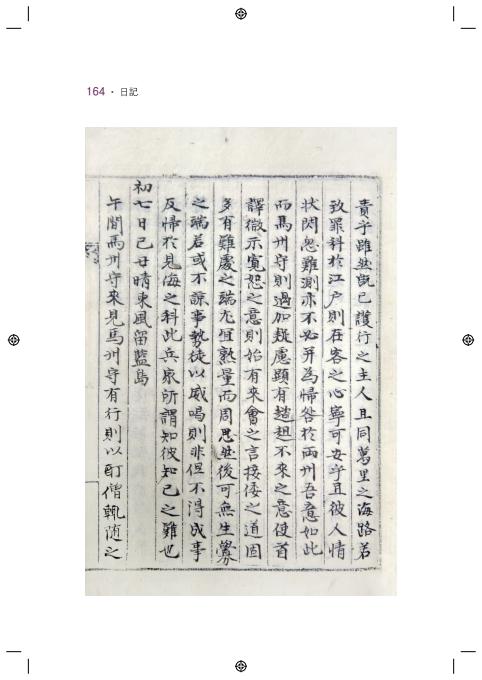 164 · 日記
責乎雖然旣已護行之主人且同萬里之海路若
致罪科於江戶則在客之心寧可安乎且彼人情
狀閃忽難測亦不必幷爲歸咎於兩州吾意如此
而馬州守則過加疑慮顯有趑趄不來之意使首
譯微示寬恕之意則始有來會之言接倭之道固
多有難處之端尤宜熟量而周思然後可無生釁
之端若或不諒事勢徒以威喝則非但不得成事
反歸於見侮之科此兵家所謂知彼知己之難也
初七日己丑晴東風留藍島
午間馬州守來見馬州守有行則以酊僧輒隨之